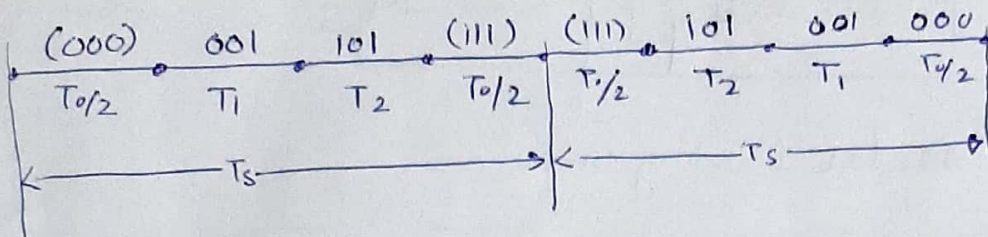 (000) 001 101 (111) (111) 101 001 000
T0/2 T1 T2 T0/2 T0/2 T2 T1 T0/2
Ts Ts